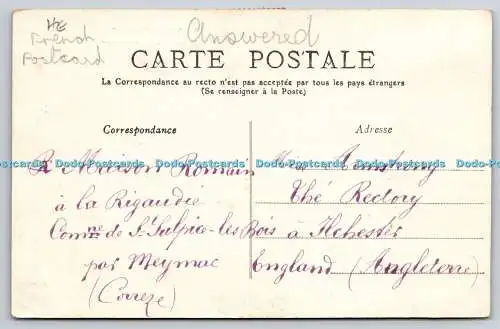 HE
French
Postcard
Answered
CARTE POSTALE
La Correspondance au recto n'est pas acceptée par tous les pays étrangers
(Se renseigner à la Poste)
Correspondance
R Maison Romain
à la Rigaudie
Comne de St Sulpice-les-Bois
par Meymac
(Corrèze)
Adresse
Armstrong
Thé Rectory
à Ilchester
England (Angleterre)
Dodo-Postcards Dodo-Postcards Dodo-Postcards Dodo-Postcards Dodo-Postcards Dodo-Postcards